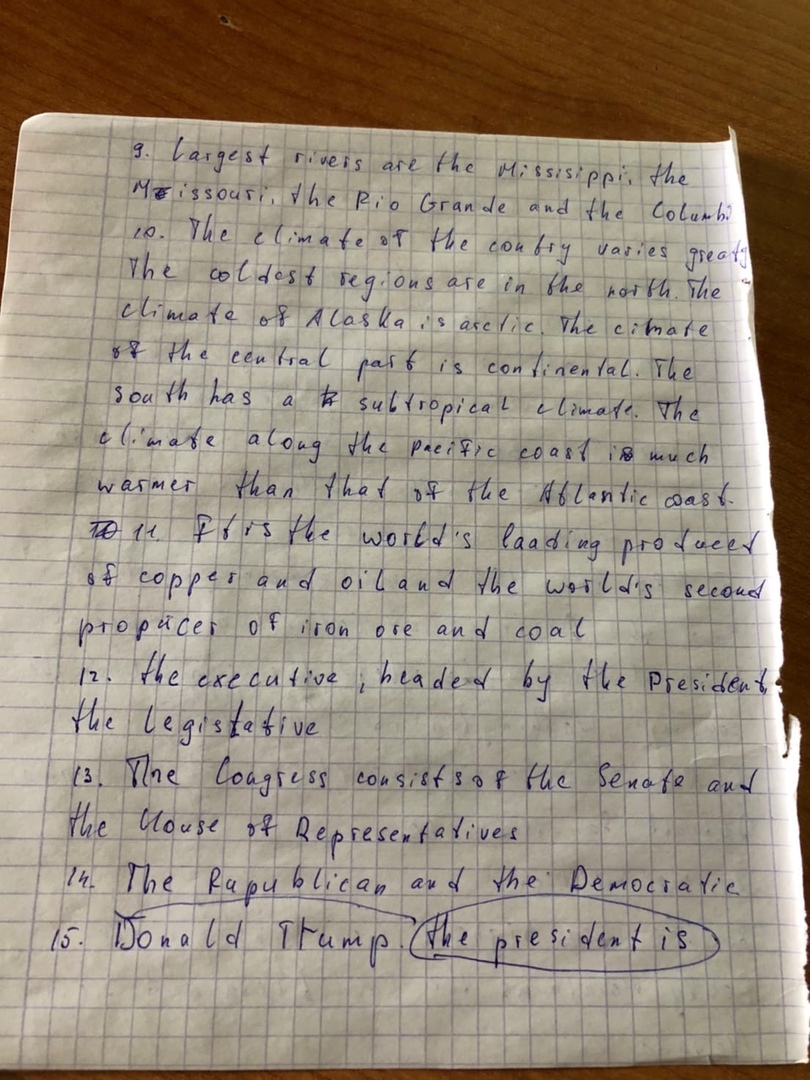 9. Largest rivers are the Missisippi, the
Missouri, the Rio Grande and the Columbi
10. The climate of the contry varies greatly
The coldest regions are in the north. The
climate of Alaska is arctic. The climate
of the central part is continental. The
south has a subtropical climate. The
climate along the pacific coast is much
warmer than that of the Atlantic coast.
11. It is the world's laading producer
of copper and oil and the world's second
propucer of iron ore and coal
12. the executive, headed by the President,
the legistative
13. The Congress consists of the Senate and
the House of Representatives
14. The Rapublican and the Democratic
15. Donald Trump. the president is